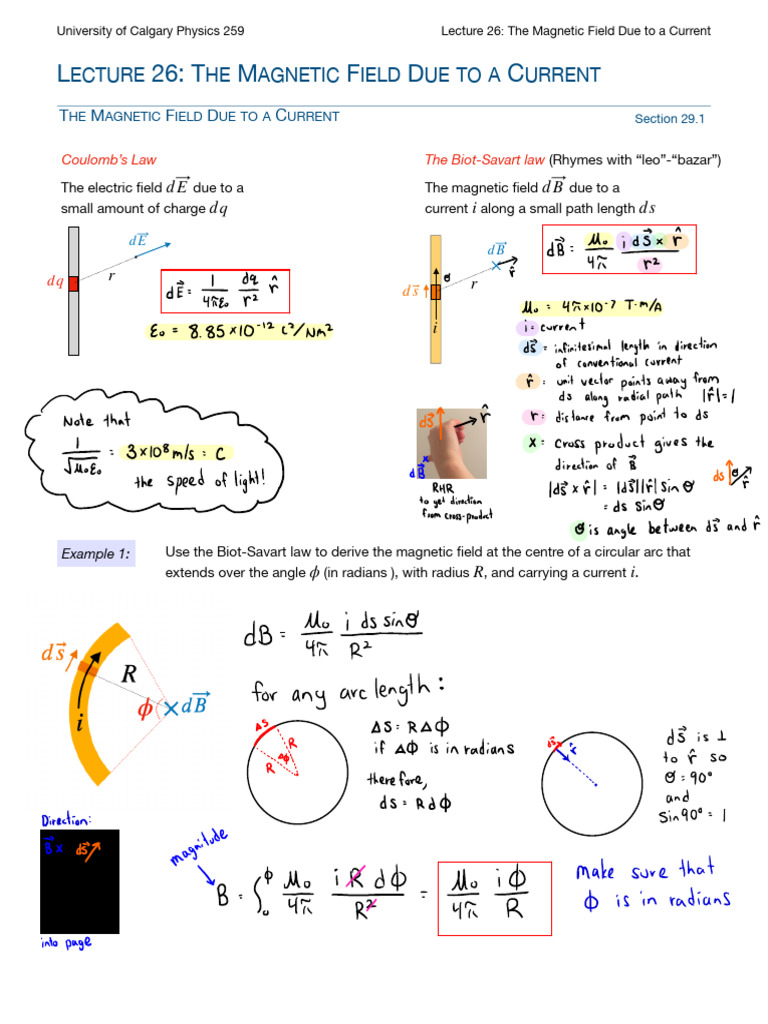 University of Calgary Physics 259
Lecture 26: The Magnetic Field Due to a Current
LECTURE 26: THE MAGNETIC FIELD DUE TO A CURRENT
THE MAGNETIC FIELD DUE TO A CURRENT
Section 29.1
Coulomb's Law
The electric field dE⃗ due to a
small amount of charge dq
dE⃗
dq
r
dE⃗ = 1/4πε₀ dq/r² r̂
ε₀ = 8.85×10⁻¹² C²/Nm²
Note that
1/√μ₀ε₀ = 3×10⁸ m/s = C
the speed of light!
The Biot-Savart law (Rhymes with “leo”-“bazar”)
The magnetic field dB⃗ due to a
current i along a small path length ds
dB⃗
θ
r̂
ds⃗
r
i
dB⃗ = μ₀/4π i dS⃗ × r̂/r²
μ₀ = 4π×10⁻⁷ T·m/A
i = current
ds⃗ = infinitesimal length in direction
of conventional current
r̂ = unit vector points away from
ds along radial path |r̂| = 1
r = distance from point to ds
× = cross product gives the
direction of B⃗
|ds⃗ × r̂| = |ds⃗||r̂| sin θ
= ds sin θ
θ is angle between ds⃗ and r̂
ds θ r̂
ds⃗
r̂
dB⃗ ×
RHR
to get direction
from cross-product
Example 1:
Use the Biot-Savart law to derive the magnetic field at the centre of a circular arc that
extends over the angle ϕ (in radians ), with radius R, and carrying a current i.
ds⃗
R
ϕ
dB⃗
i
dB = μ₀/4π i ds sinθ/R²
for any arc length:
ΔS
R
Δϕ
R
ΔS = RΔϕ
if Δϕ is in radians
therefore,
ds = Rdϕ
ds⃗
r̂
dS⃗ is ⊥
to r̂ so
θ = 90°
and
sin90° = 1
Direction:
B⃗ × ds⃗
into page
magnitude
B = ∫₀^ϕ μ₀/4π i R dϕ/R² = μ₀/4π iϕ/R
make sure that
ϕ is in radians